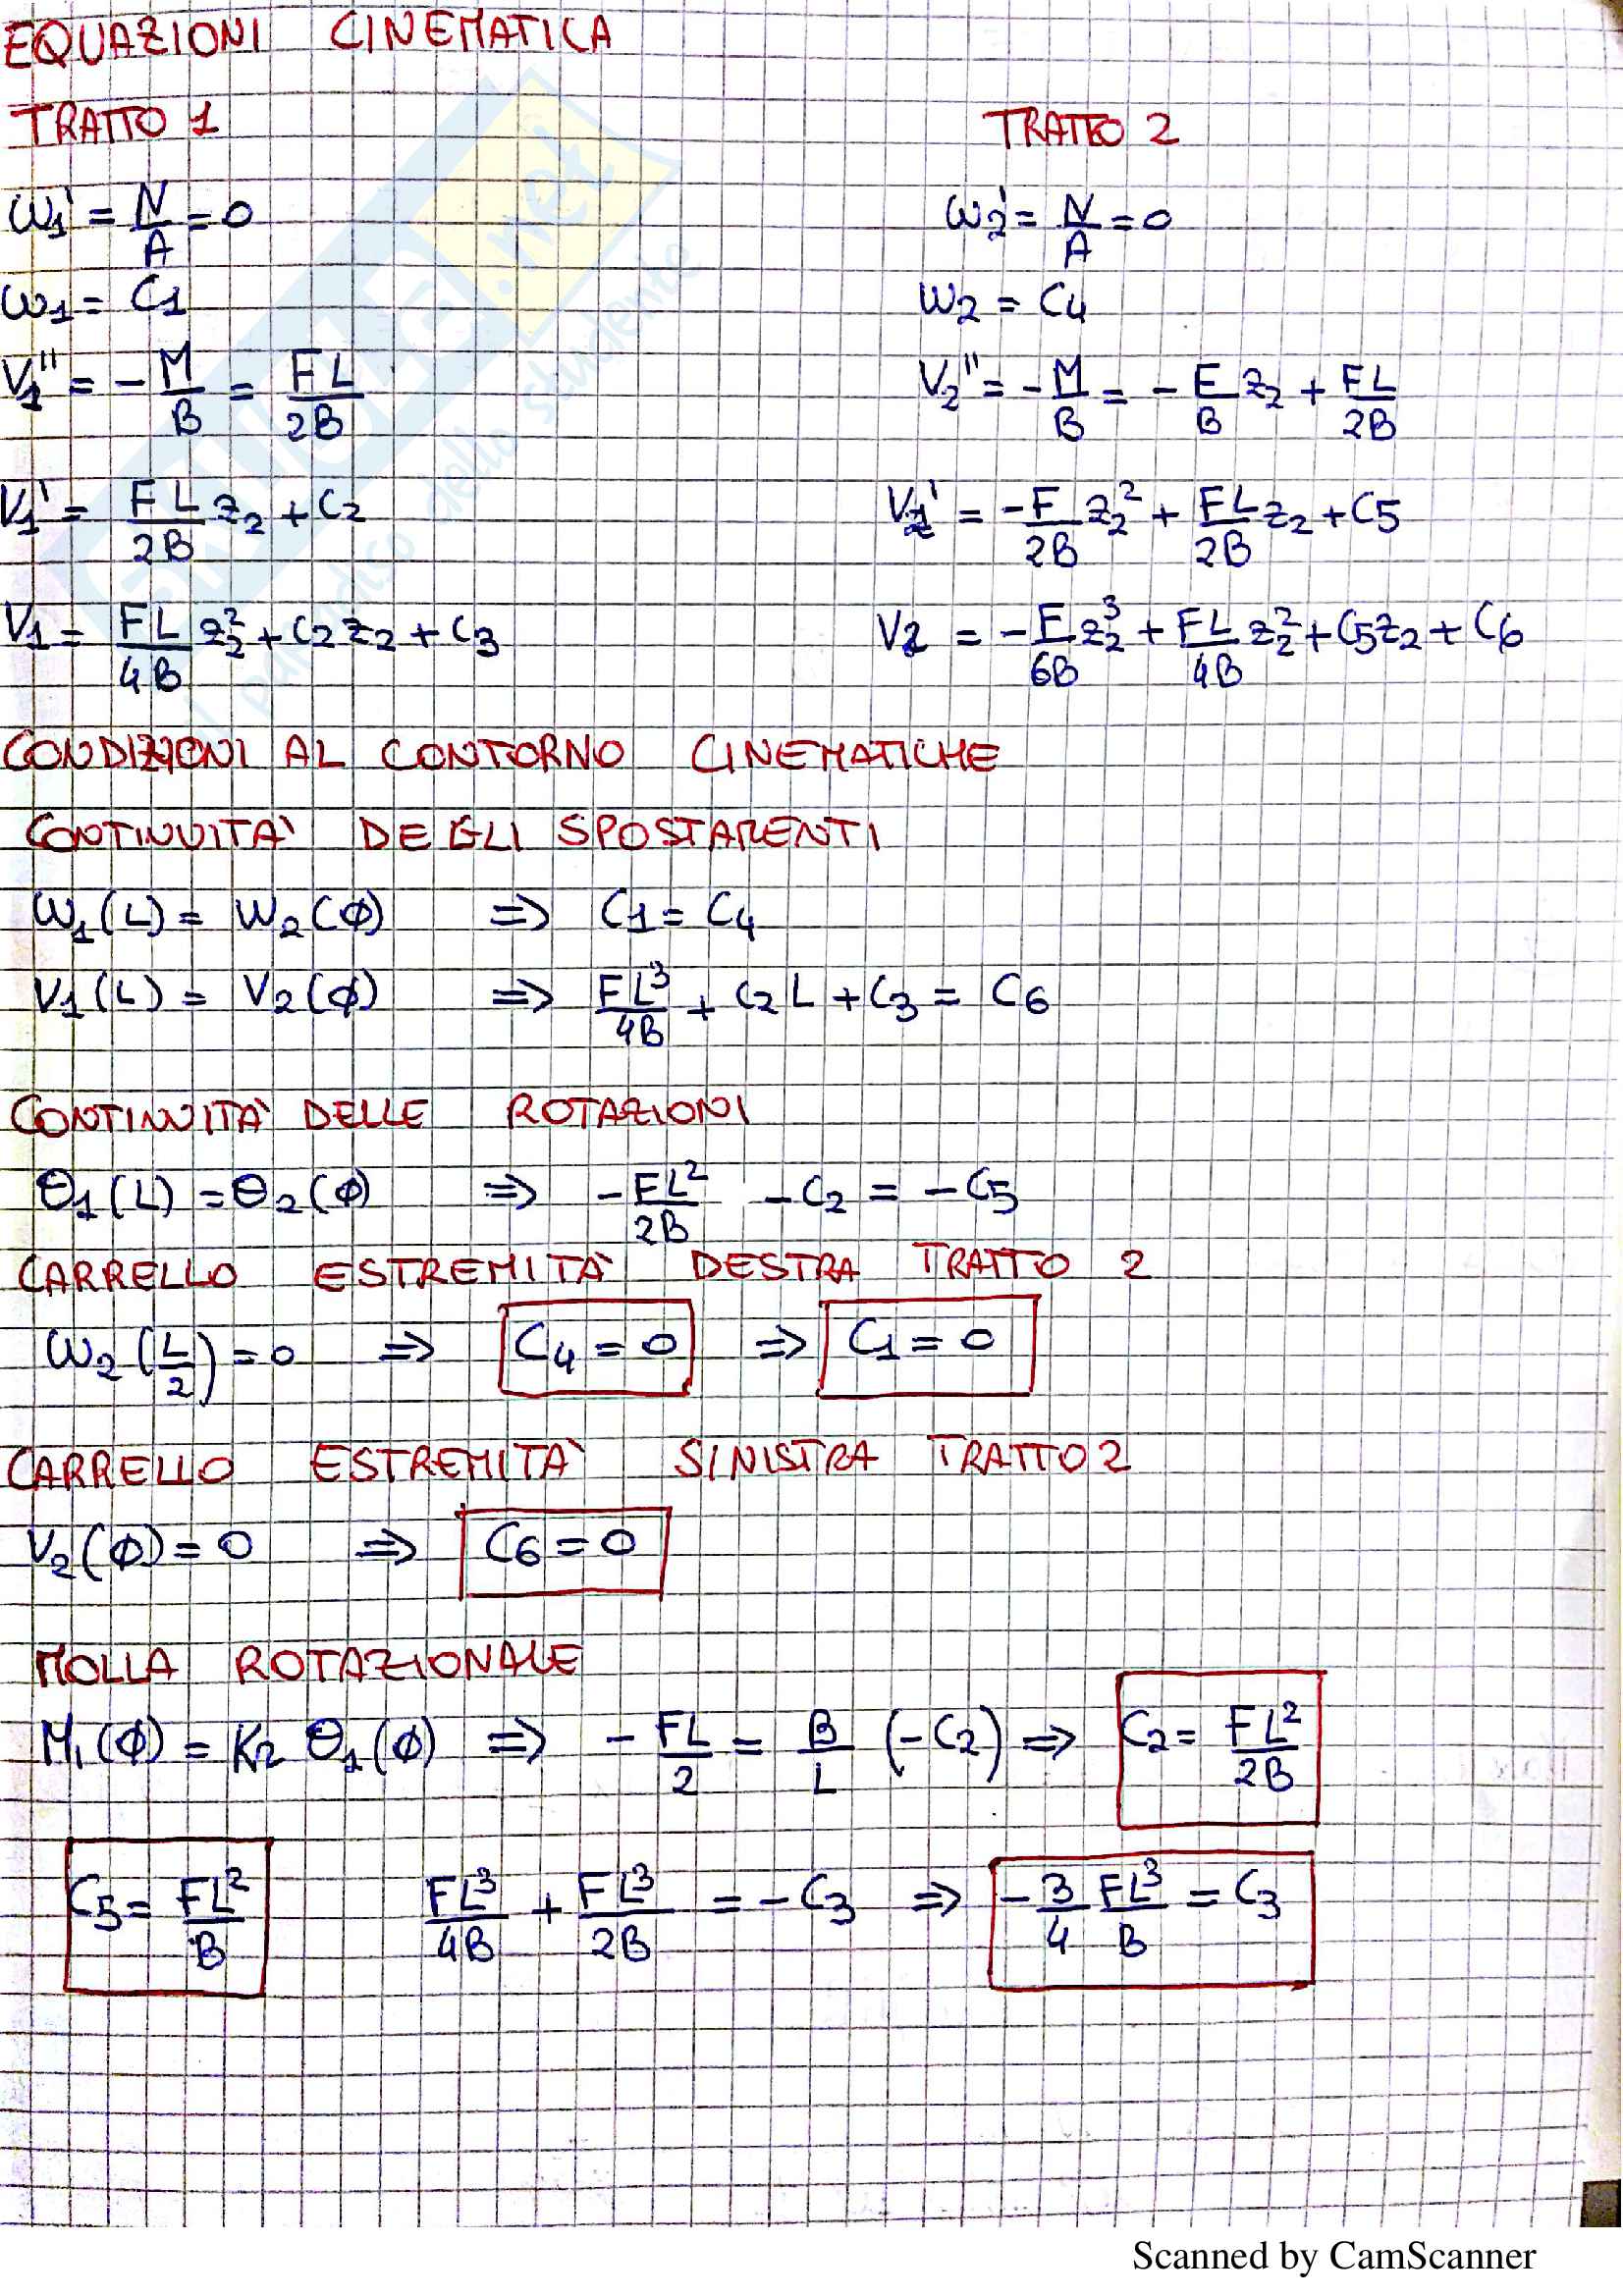 EQUAZIONI CINEMATICA
TRATTO 1 TRATTO 2
w1' = N/A = 0 w2' = N/A = 0
w1 = C1 w2 = C4
V1'' = - M/B = FL/2B V2'' = - M/B = - F/B z2 + FL/2B
V1' = FL/2B z2 + C2 V2' = -F/2B z2² + FL/2B z2 + C5
V1 = FL/4B z2² + C2 z2 + C3 V2 = - F/6B z2³ + FL/4B z2² + C5 z2 + C6
CONDIZIONI AL CONTORNO CINEMATICHE
CONTINUITA' DEGLI SPOSTAMENTI
W1(L) = W2(∅) => C1 = C4
V1(L) = V2(∅) => FL³/4B + C2 L + C3 = C6
CONTINUITA' DELLE ROTAZIONI
Θ1(L) = Θ2(∅) => - FL²/2B - C2 = - C5
CARRELLO ESTREMITA' DESTRA TRATTO 2
W2(L/2) = 0 => C4 = 0 => C1 = 0
CARRELLO ESTREMITA' SINISTRA TRATTO 2
V2(∅) = 0 => C6 = 0
MOLLA ROTAZIONALE
M1(∅) = K2 Θ1(∅) => - FL/2 = B/L (-C2) => C2 = FL²/2B
C5 = FL²/B FL³/4B + FL³/2B = - C3 => - 3/4 FL³/B = C3
Scanned by CamScanner